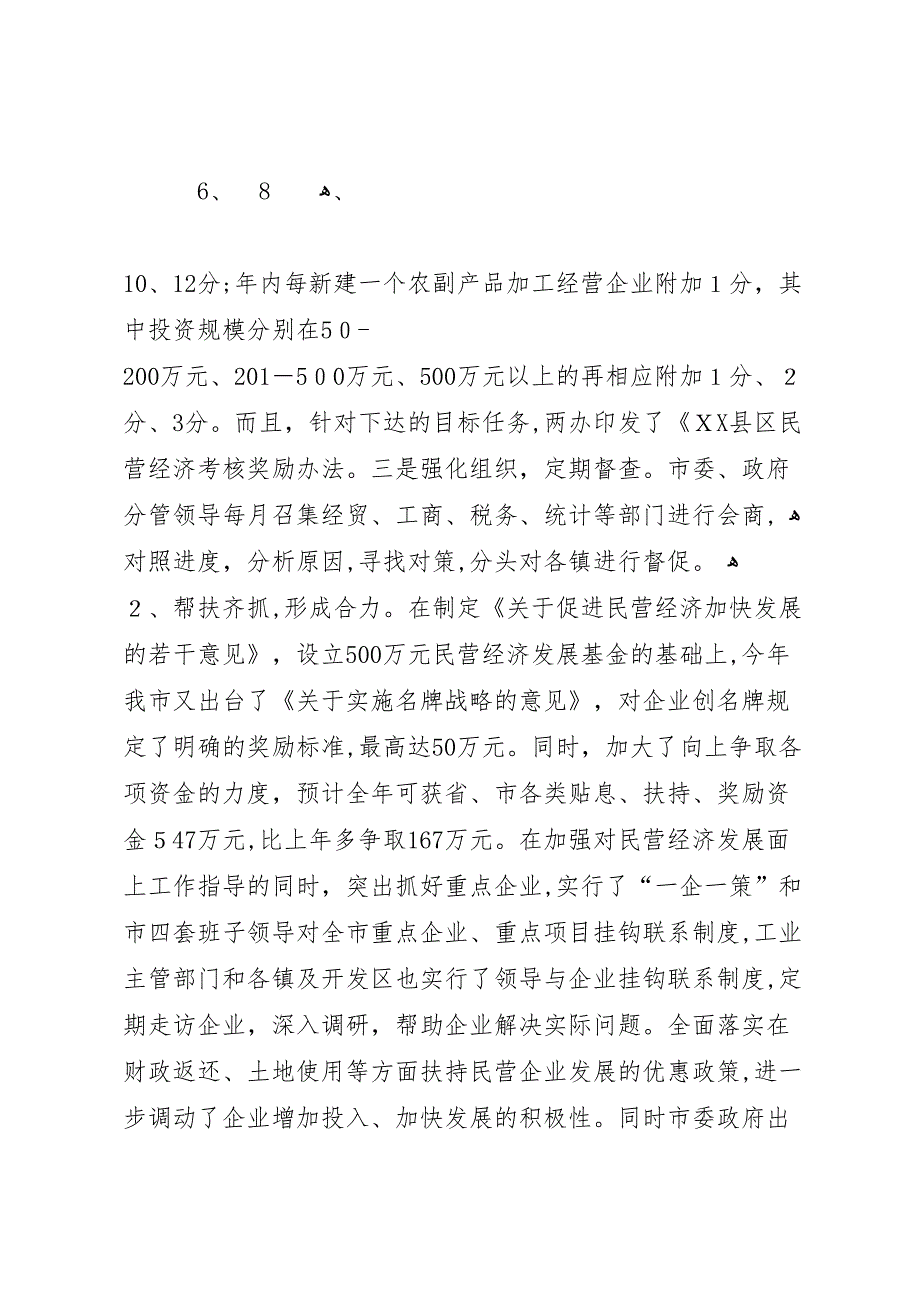 6、 8 ﻫ、
10、12分;年内每新建一个农副产品加工经营企业附加１分，其
中投资规模分别在50-
200万元、201—500万元、500万元以上的再相应附加１分、２
分、3分。而且，针对下达的目标任务,两办印发了《ＸX县区民
营经济考核奖励办法。三是强化组织，定期督查。市委、政府
分管领导每月召集经贸、工商、税务、统计等部门进行会商，ﻫ
对照进度，分析原因,寻找对策,分头对各镇进行督促。ﻫ
２、帮扶齐抓,形成合力。在制定《关于促进民营经济加快发展
的若干意见》，设立500万元民营经济发展基金的基础上,今年
我市又出台了《关于实施名牌战略的意见》，对企业创名牌规
定了明确的奖励标准,最高达50万元。同时，加大了向上争取各
项资金的力度，预计全年可获省、市各类贴息、扶持、奖励资
金547万元,比上年多争取167万元。在加强对民营经济发展面
上工作指导的同时，突出抓好重点企业,实行了“一企一策”和
市四套班子领导对全市重点企业、重点项目挂钩联系制度,工业
主管部门和各镇及开发区也实行了领导与企业挂钩联系制度,定
期走访企业，深入调研，帮助企业解决实际问题。全面落实在
财政返还、土地使用等方面扶持民营企业发展的优惠政策,进一
步调动了企业增加投入、加快发展的积极性。同时市委政府出